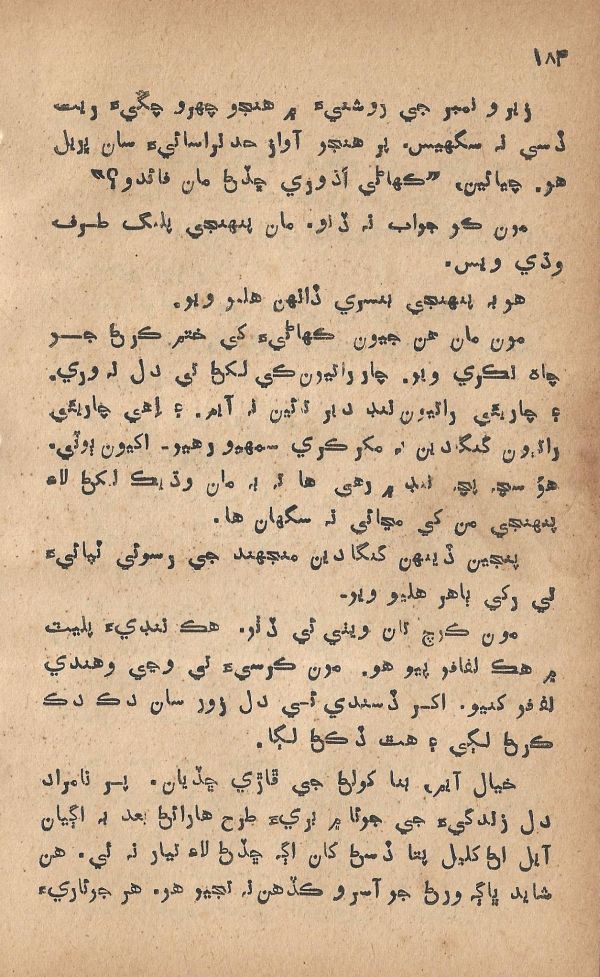 ۱۸۴
زيرو نمبر جي روشنيءَ ۾ هنجو چهرو چڱيءَ ريت
ڏسي نہ سگهيس. پر هنجو آواز حد نراسائيءَ سان ڀريل
هو. چيائين، ”ڪهاڻي اڌوري ڇڏڻ مان فائدو؟“
مون ڪو جواب نہ ڏنو. مان پنهنجي پلنگ طرف
وڌي ويس.
هو بہ پنهنجي بستري ڏانهن هليو ويو.
مون مان هن جيون ڪهاڻيءَ کي ختم ڪرڻ جو
چاهہ نڪري ويو. چار راتيون ڪي لکڻ تي دل نہ وري.
۽ چاريئي راتيون ننڊ دير تائين نہ آيم. ۽ اهي چاريئي
راتيون گنگادين بہ مڪر ڪري سمهيو رهيو۔ اکيون ٻوٽي.
هؤ سچ پچ ننڊ ۾ رهي ها تہ بہ مان وڌيڪ لکڻ لاءِ
پنهنجي من کي مڃائي نہ سگهان ها.
پنجين ڏينهن گنگادين منجهند جي رسوئي ٺپائيءَ
تي رکي ٻاهر هليو ويو۔
مون ڪوچ تان ويٺي ئي ڏٺو. هڪ ننڍيءَ پليٽ
۾ هڪ لفافو پيو هو. مون ڪرسيءَ تي وڃي وهندي
لفافو کنيو. اکر ڏسندي ئي دل زور سان دڪ دڪ
ڪرڻ لڳي ۽ هٿ ڏڪڻ لڳا.
خيال آيم، بنا کولڻ جي ڦاڙي ڇڏيان. پر نامراد
دل زندگيءَ جي جوئا ۾ بريءَ طرح هارائڻ بعد بہ اڳيان
آيل اڻکليل پتا ڏسڻ کان اڳہ ڇڏڻ لاءِ تيار نہ ٿي. هن
شايد ڀاڳہ ورڻ جو آسرو ڪڏهن نہ تجيو هو. هر جوئاريءَ